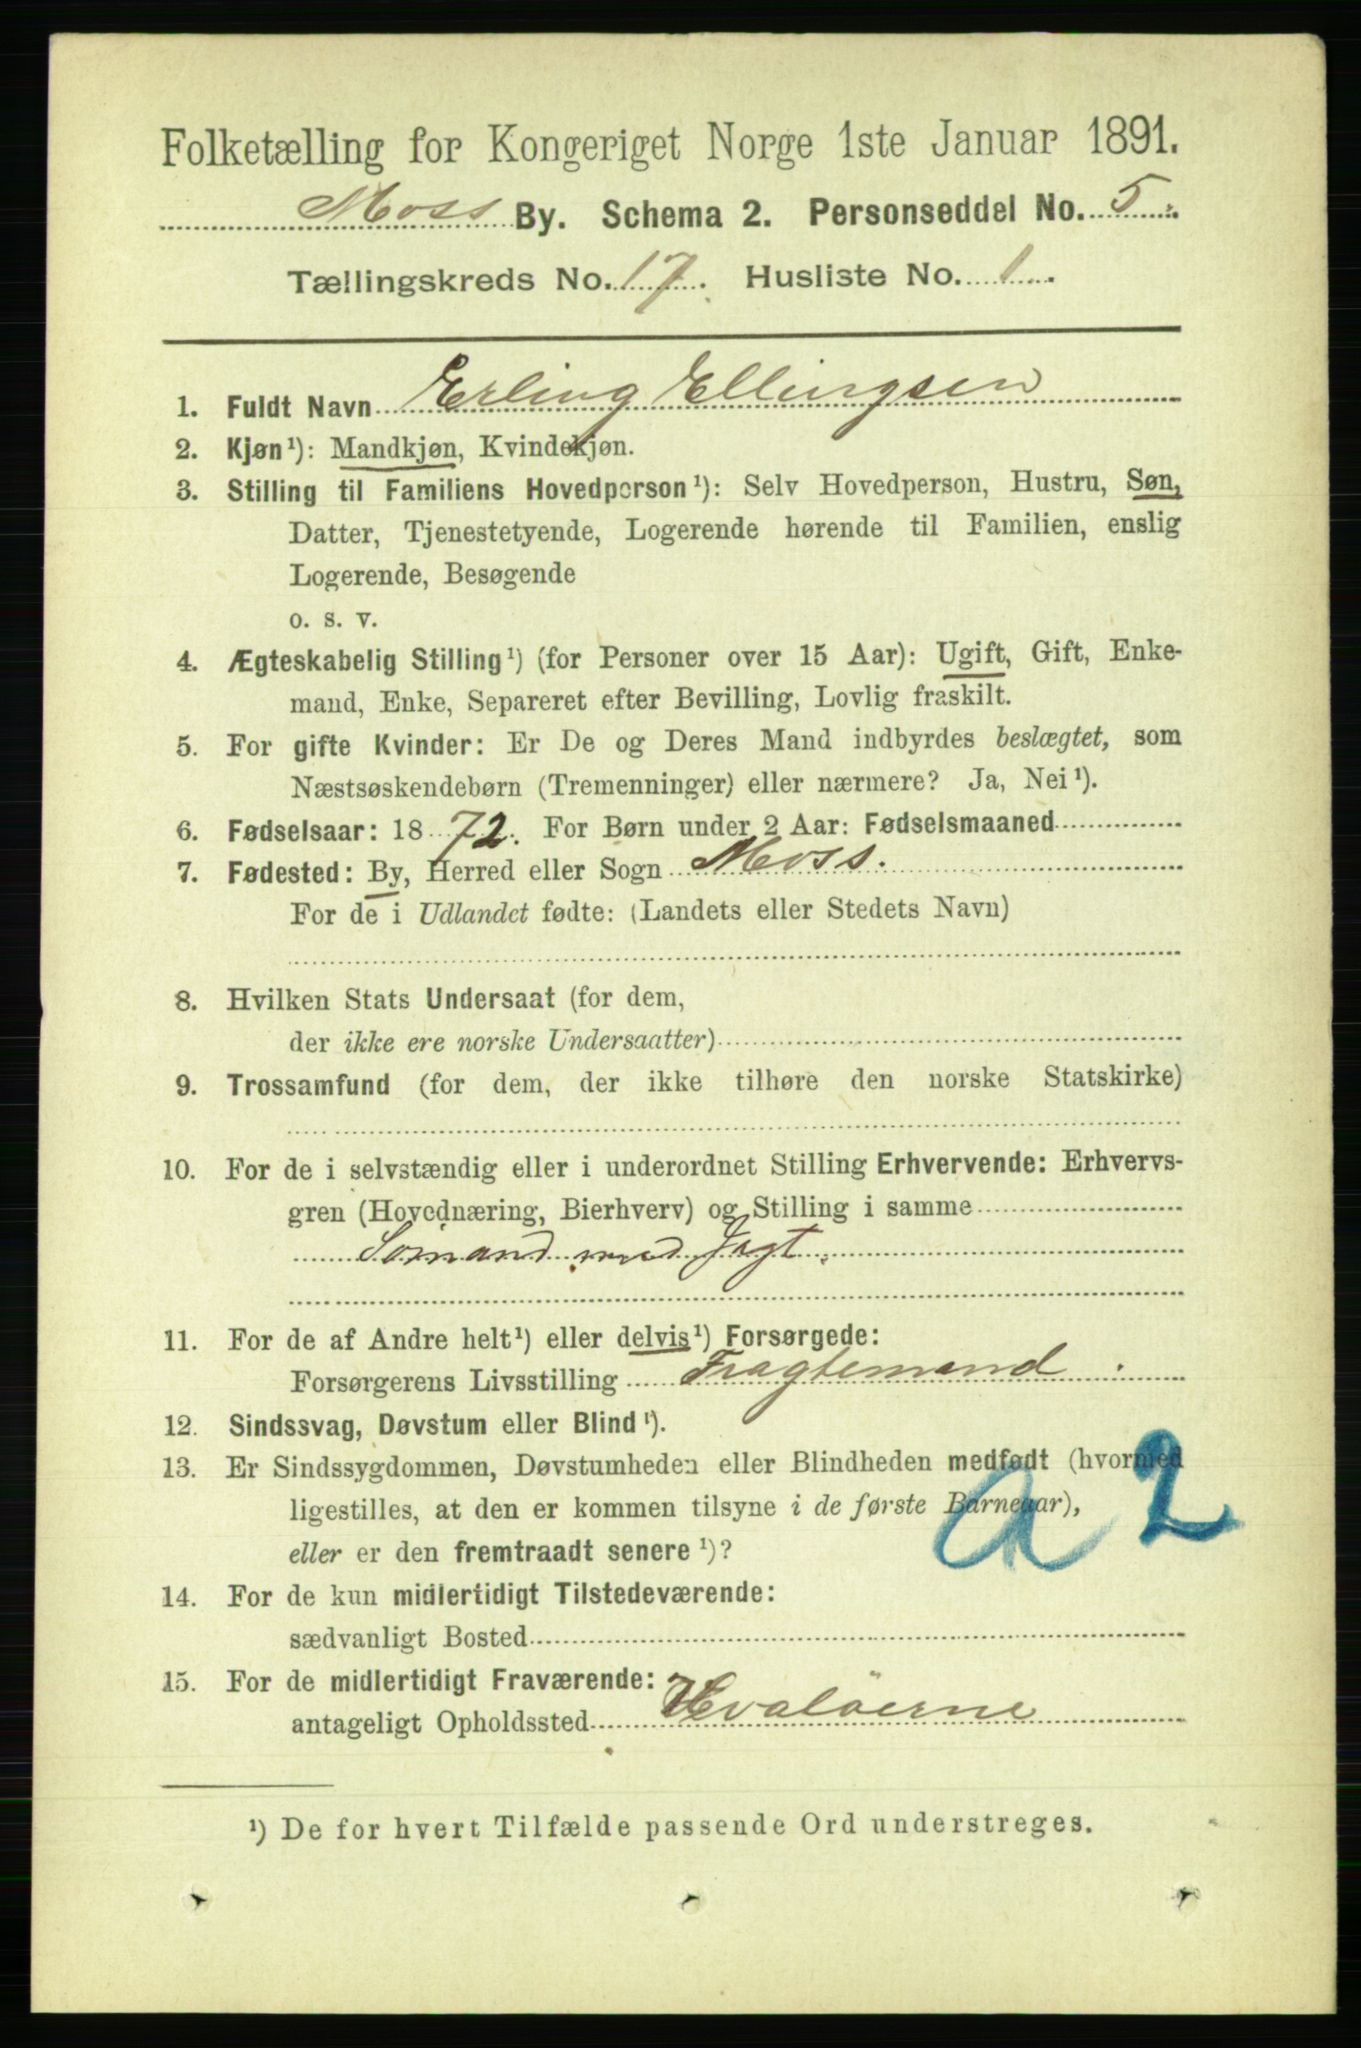 Folketælling for Kongeriget Norge 1ste Januar 1891.
Moss By. Schema 2. Personseddel No. 5.
Tællingskreds No. 17. Husliste No. 1.
1. Fuldt Navn Erling Ellingsen
2. Kjøn¹): Mandkjøn, Kvindekjøn.
3. Stilling til Familiens Hovedperson¹): Selv Hovedperson, Hustru, Søn,
Datter, Tjenestetyende, Logerende hørende til Familien, enslig
Logerende, Besøgende
o. s. v.
4. Ægteskabelig Stilling¹) (for Personer over 15 Aar): Ugift, Gift, Enke-
mand, Enke, Separeret efter Bevilling, Lovlig fraskilt.
5. For gifte Kvinder: Er De og Deres Mand indbyrdes beslægtet, som
Næstsøskendebørn (Tremenninger) eller nærmere? Ja, Nei¹).
6. Fødselsaar: 1872. For Børn under 2 Aar: Fødselsmaaned
7. Fødested: By, Herred eller Sogn Moss.
For de i Udlandet fødte: (Landets eller Stedets Navn)
8. Hvilken Stats Undersaat (for dem,
der ikke ere norske Undersaatter)
9. Trossamfund (for dem, der ikke tilhøre den norske Statskirke)
10. For de i selvstændig eller i underordnet Stilling Erhvervende: Erhvervs-
gren (Hovednæring, Bierhverv) og Stilling i samme
Sømand med Jagt.
11. For de af Andre helt¹) eller delvis¹) Forsørgede:
Forsørgerens Livsstilling Fragtemand.
12. Sindssvag, Døvstum eller Blind¹).
13. Er Sindssygdommen, Døvstumheden eller Blindheden medfødt (hvormed
ligestilles, at den er kommen tilsyne i de første Barneaar),
eller er den fremtraadt senere¹)?
a 2
14. For de kun midlertidigt Tilstedeværende:
sædvanligt Bosted
15. For de midlertidigt Fraværende:
antageligt Opholdssted Hvaløerne
¹) De for hvert Tilfælde passende Ord understreges.